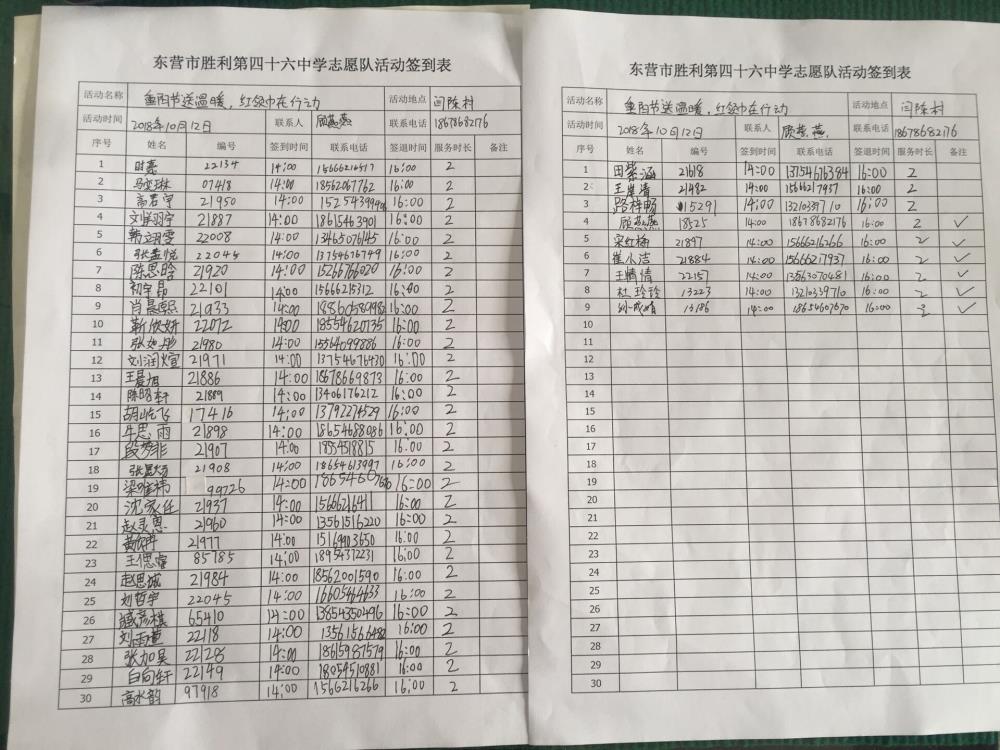 东营市胜利第四十六中学志愿队活动签到表
活动名称 重阳节送温暖，红领巾在行动 活动地点 闫陈村
活动时间 2018年10月12日 联系人 顾燕燕 联系电话 18678682176
序号 姓名 编号 签到时间 联系电话 签退时间 服务时长 备注
1 22134 14:00 16:00 2
2 马奕琳 07418 14:00 18562067762 16:00 2
3 高若宇 21950 14:00 16:00 2
4 刘羽宇 21887 14:00 18615463901 16:00 2
5 韩立翊雯 22008 14:00 13465076145 16:00 2
6 张孟悦 22044 14:00 13754676749 16:00 2
7 陈思晗 21920 14:00 15266766020 16:00 2
8 初宇昂 22101 14:00 1566625312 16:00 2
9 肖晨熙 21933 14:00 16:00 2
10 靳欣妍 22072 14:00 18554620735 16:00 2
11 张如彤 21980 14:00 15564099886 16:00 2
12 刘润煊 21971 14:00 13754676430 16:00 2
13 王晨旭 21886 14:00 18678669873 16:00 2
14 陈昭轩 21889 14:00 13406176212 16:00 2
15 胡屹飞 17416 14:00 13792274529 16:00 2
16 牛思雨 21898 14:00 18654688086 16:00 2
17 段梦菲 21907 14:00 18554518815 16:00 2
18 21908 14:00 18654613997 16:00 2
19 99726 14:00 16:00 2
20 沈家任 21937 14:00 15666216411 16:00 2
21 赵灵惠 21960 14:00 13561516220 16:00 2
22 21977 14:00 15169903650 16:00 2
23 王偲萱 85785 14:00 18954372231 16:00 2
24 赵思诚 21984 14:00 18562001590 16:00 2
25 刘哲宇 22045 14:00 16605464633 16:00 2
26 臧彦棋 65410 14:00 13854350496 16:00 2
27 刘雨萱 22118 14:00 16:00 2
28 张加昊 22128 14:00 18615987579 16:00 2
29 白向轩 22149 14:00 18054510881 16:00 2
30 高水韵 97918 14:00 1566216266 16:00 2
东营市胜利第四十六中学志愿队活动签到表
活动名称 重阳节送温暖，红领巾在行动 活动地点 闫陈村
活动时间 2018年10月12日 联系人 顾燕燕 联系电话 18678682176
序号 姓名 编号 签到时间 联系电话 签退时间 服务时长 备注
1 田紫涵 21618 14:00 13754676384 16:00 2
2 王岸清 21482 14:00 1566217937 16:00 2
3 路梓畅 15291 14:00 13210339710 16:00 2
4 顾燕燕 18525 14:00 18678682176 16:00 2 ✓
5 宋红梅 21897 14:00 15666216266 16:00 2 ✓
6 崔小洁 21884 14:00 15666217937 16:00 2 ✓
7 王情情 22157 14:00 13563070481 16:00 2 ✓
8 杜玲玲 13223 14:00 13210339710 16:00 2 ✓
9 13186 14:00 18654607670 16:00 2 ✓
10
11
12
13
14
15
16
17
18
19
20
21
22
23
24
25
26
27
28
29
30